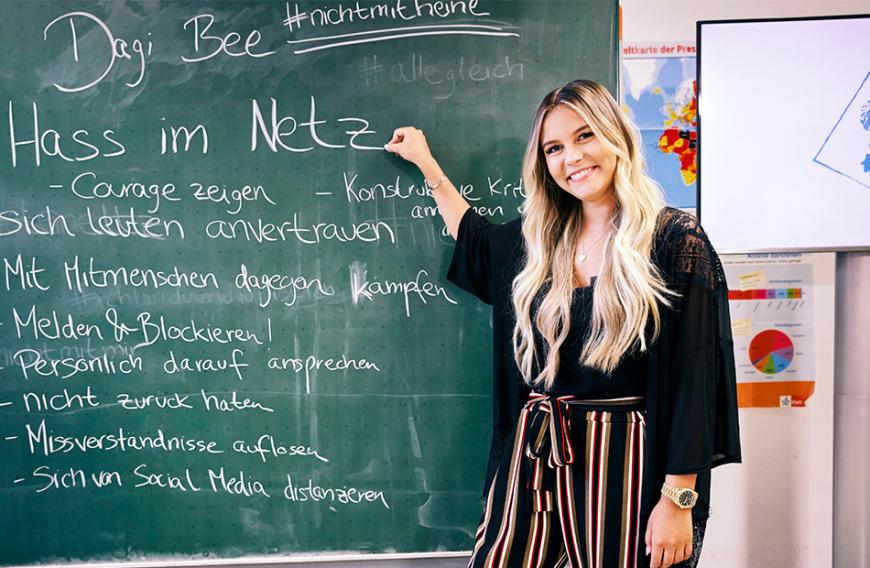 Dagi Bee #nichtmitHeine
#allegleich
Hass im Netz
- Courage zeigen - Konstruktive Krit
sich leuten anvertrauen
Mit Mitmenschen dagegen kämpfen
- Melden & Blockieren!
- Persönlich darauf ansprechen
- nicht zurück haten
- Missverständnisse auflösen
- Sich von Social Media distanzieren
eltkarte der Press
Anteile darstellen